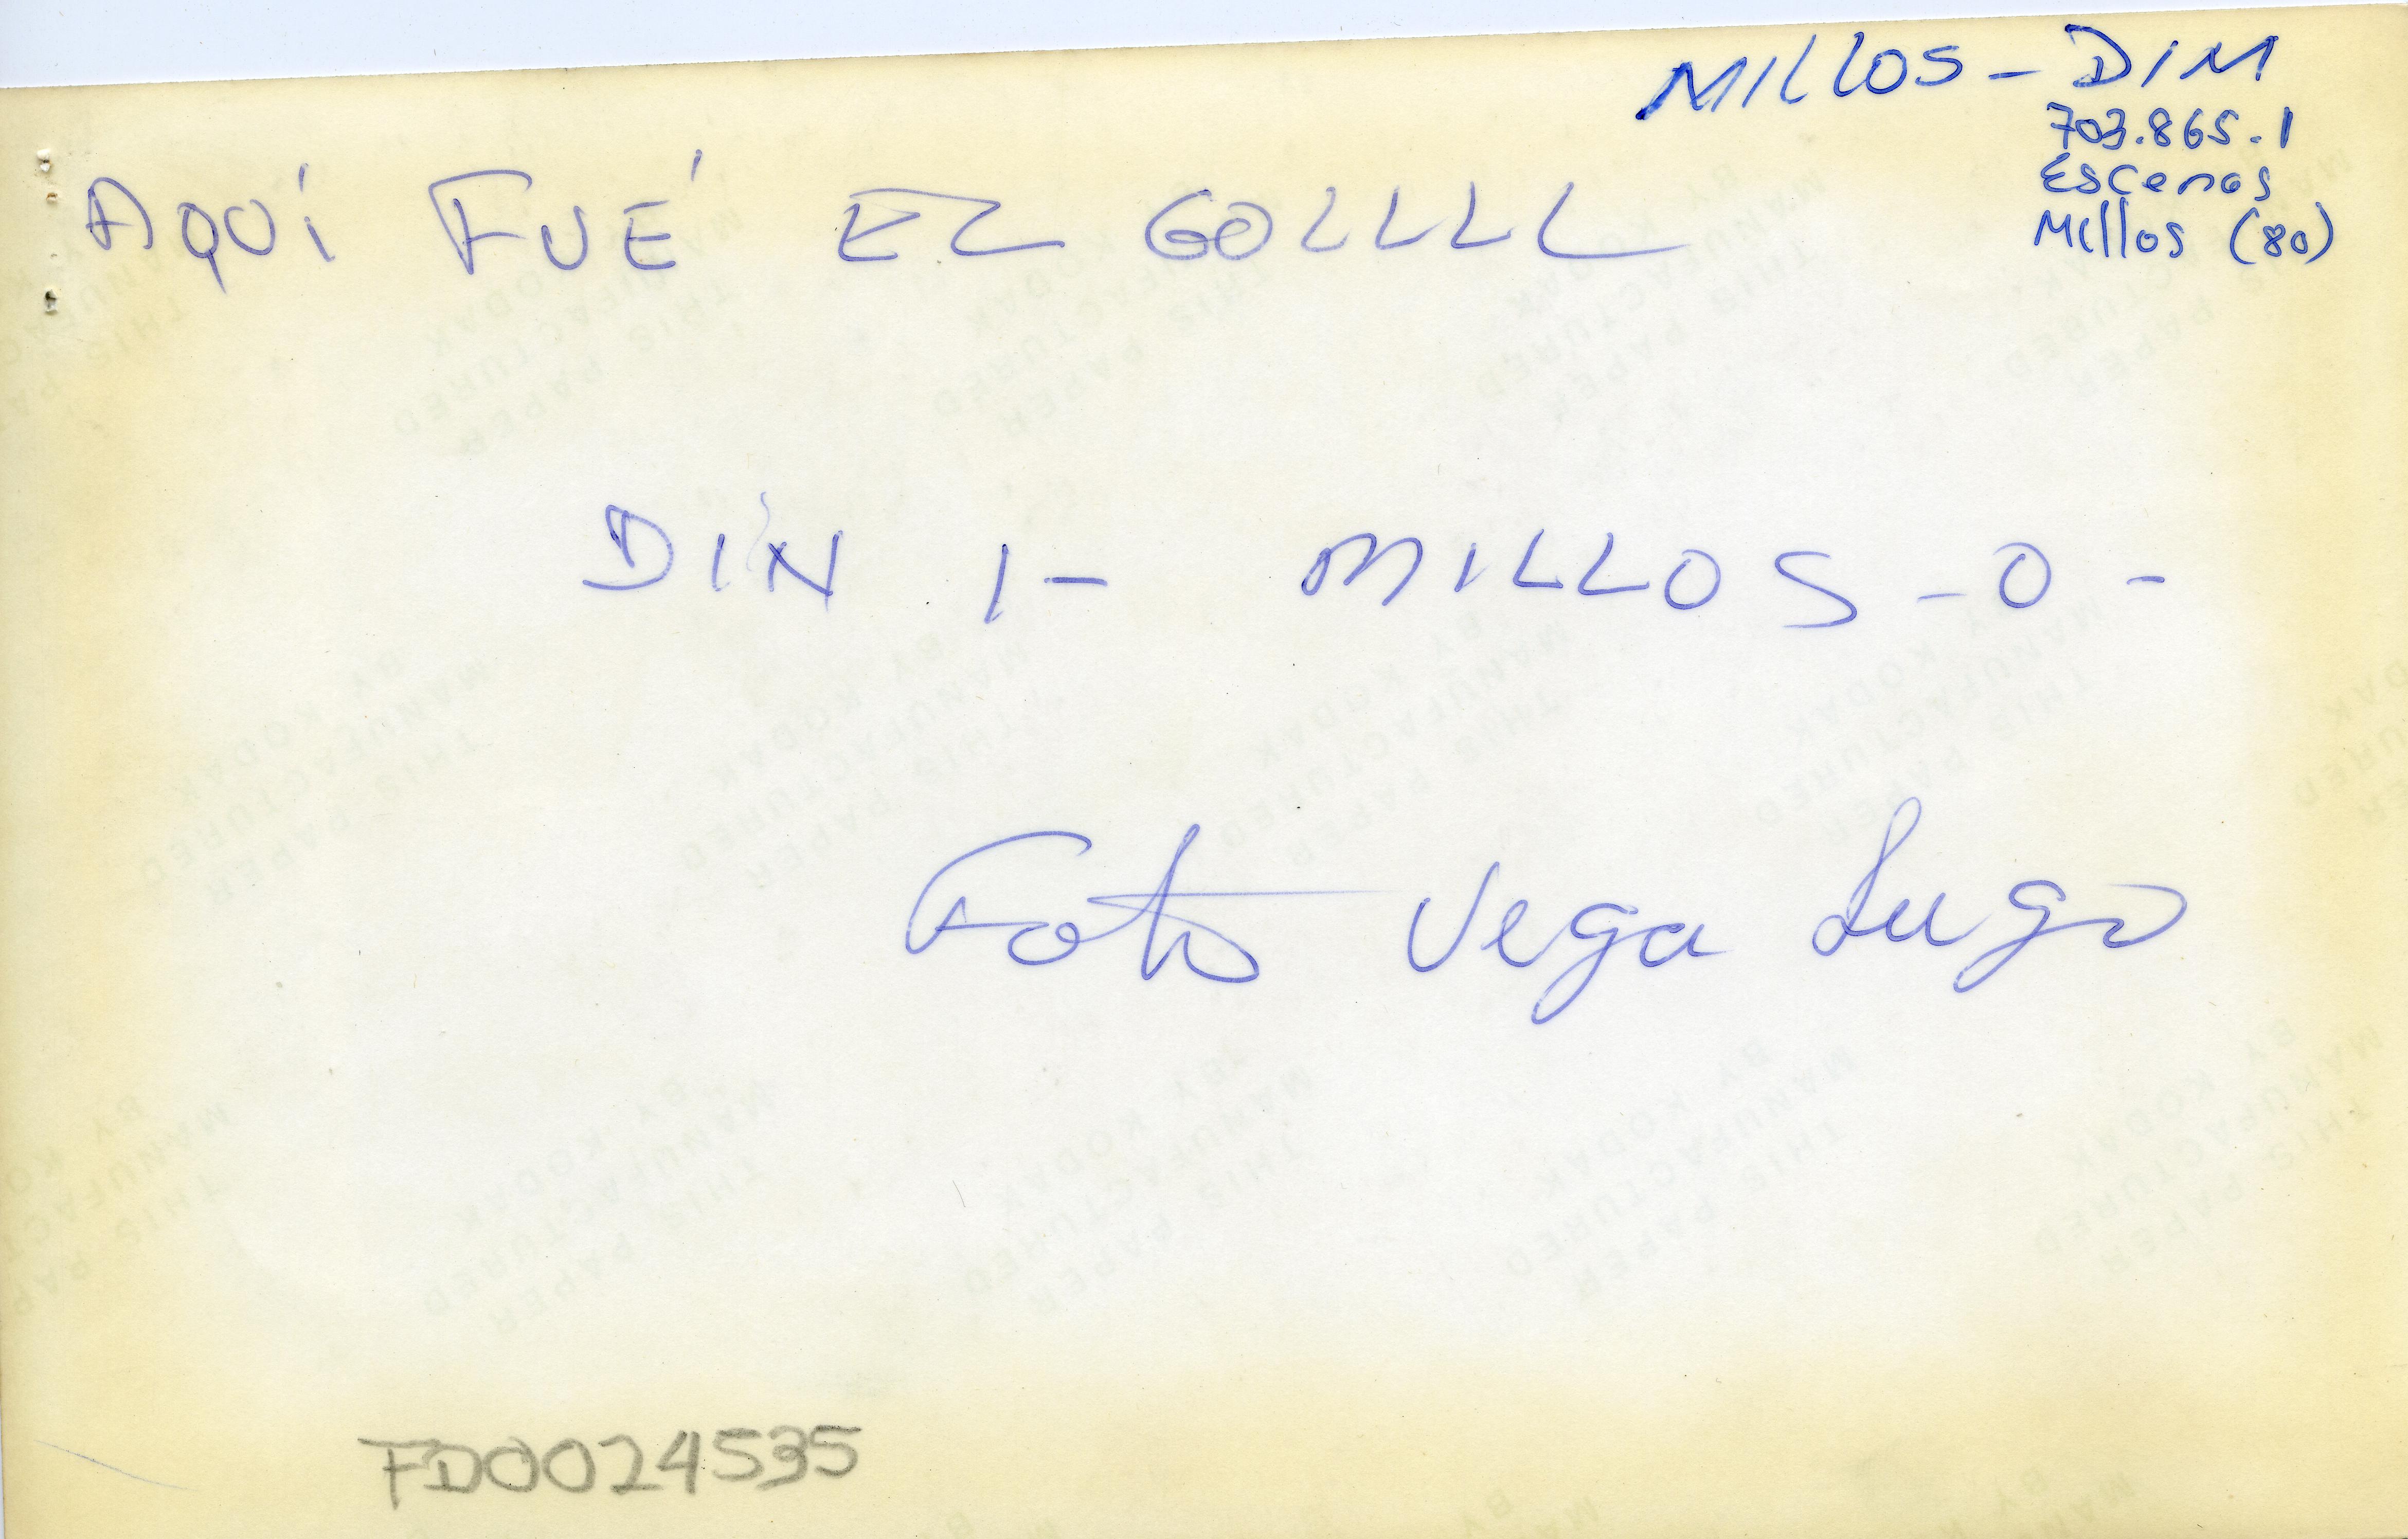 MILLOS - DIM
703.865.1
Escenas
Millos (80)
AQUÍ FUÉ EL GOLLLL
DIN 1 - MILLOS - 0 -
Foto Vega Lugo
FD0024535
THIS PAPER
MANUFACTURED
BY KODAK